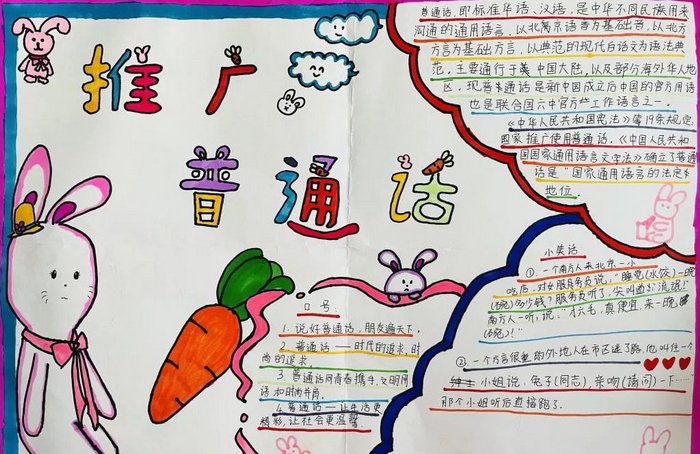 推广
普通话
普通话,即标准华语、汉语,是中华不同民族用来
沟通的通用语言,以北京语音为基础音,以北方
方言为基础方言,以典范的现代白话文为语法典
范,主要通行于中国大陆,以及部分海外华人地
区,现普通话是新中国成立后中国的官方用语
也是联合国六中官方工作语言之一。
《中华人民共和国宪法》第19条规定,
国家推广使用普通话,《中国人民共和
国国家通用语言文字法》确立了普通
话是“国家通用语言的法定
地位.
小笑话
①.一个南方人来北京一小
吃店,对女服务员说,“睡觉(水饺)一晚
(碗)多少钱?服务员听了,
南方人一听,说,“六毛,真便宜,来一晚
(碗)!”
② 一个方言很重的外地人在市区迷了路,他叫住一个
小姐说,兔子(同志),亲吻(请问)一下……
那个小姐听后直接跑了.
口号
1. 说好普通话,朋友遍天下.
2. 普通话——时代的追求,时
尚的追求.
3. 普通话同青春携手,文明用
语和时尚并肩.
4. 普通话——让生活更
精彩,让社会更温馨